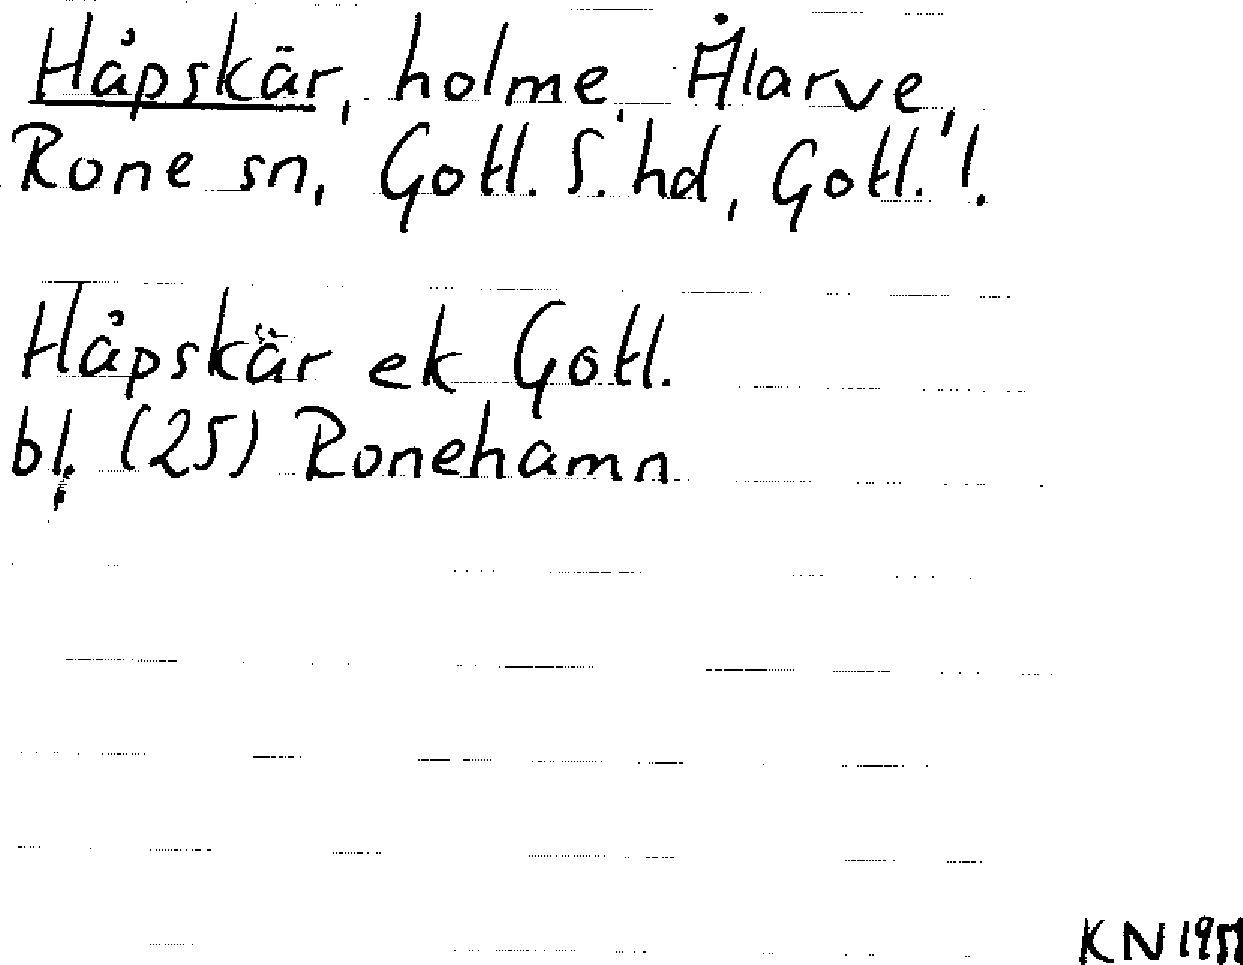 Håpskär, holme, Ålarve,
Rone sn, Gotl. S. hd, Gotl. l.
Håpskär ek Gotl.
bl. (25) Ronehamn
KN 1951